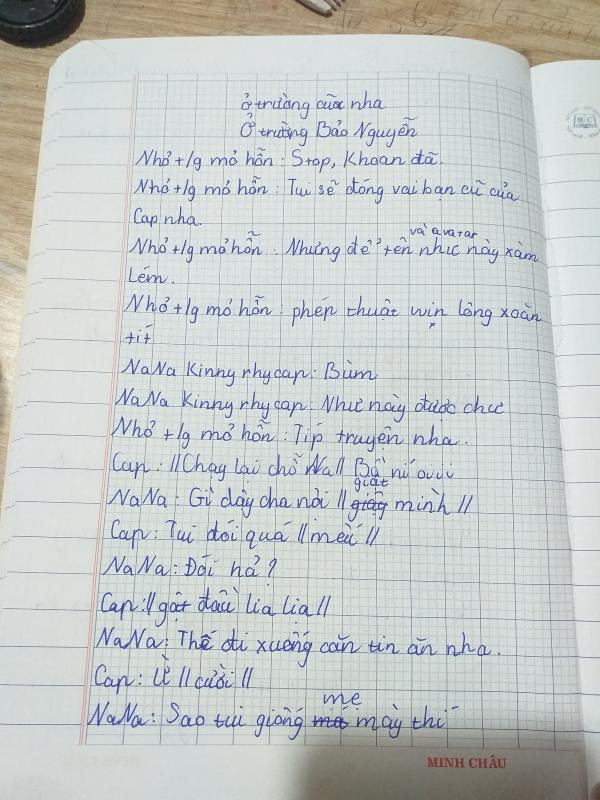 ở trường của nha
Ở trường Bảo Nguyễn
Nhỏ +lg mỏ hỗn : Stop, Khoan đã.
Nhỏ +lg mỏ hỗn : Tui sẽ đóng vai bạn cũ của
Cap nha.
và avatar
Nhỏ +lg mỏ hỗn : Nhưng để tên như này xàm
Lém.
Nhỏ +lg mỏ hỗn : phép thuật win lông xoăn
tít
NaNa Kinny rhycap : Bùm
NaNa Kinny rhycap : Như này được chư
Nhỏ +lg mỏ hỗn : Típ truyện nha.
Cap : //Chạy lại chỗ Na// Bà ní ouii
NaNa : Gì dậy cha nội // giật minh //
Cap : Tui đói quá //mếu //
NaNa : Đói hả ?
Cap : // gật đầu lia lịa//
NaNa : Thế đi xuống căn tin ăn nha.
Cap : Ừ // cười //
NaNa : Sao tui giống mẹ mày thí
MINH CHÂU